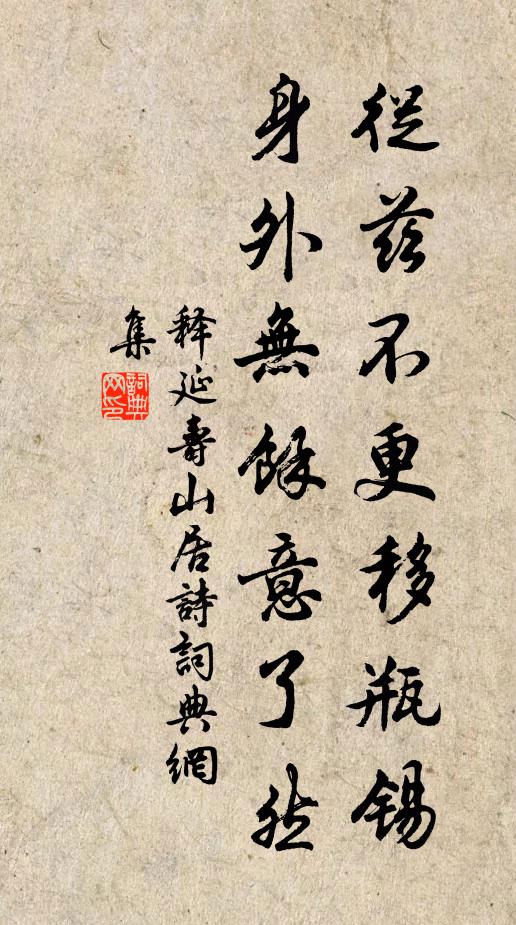 從茲不更移瓶錫
身外無餘意了然
释延壽山居詩詞典網
集
詞典
网印